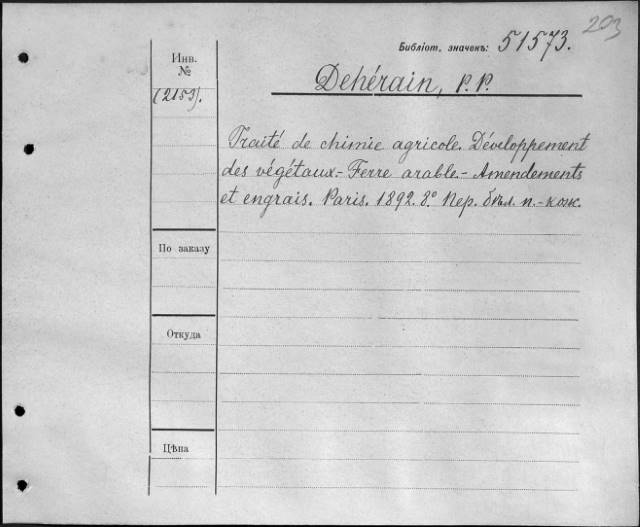 203
Библіот. значекъ: 51573.
Инв.
№
(2153).
Dehérain, P. P.
Traité de chimie agricole. Développement
des végétaux.- Terre arable.- Amendements
et engrais. Paris. 1892. 8º Пер. бѣл. п.-кож.
По заказу
Откуда
Цѣна